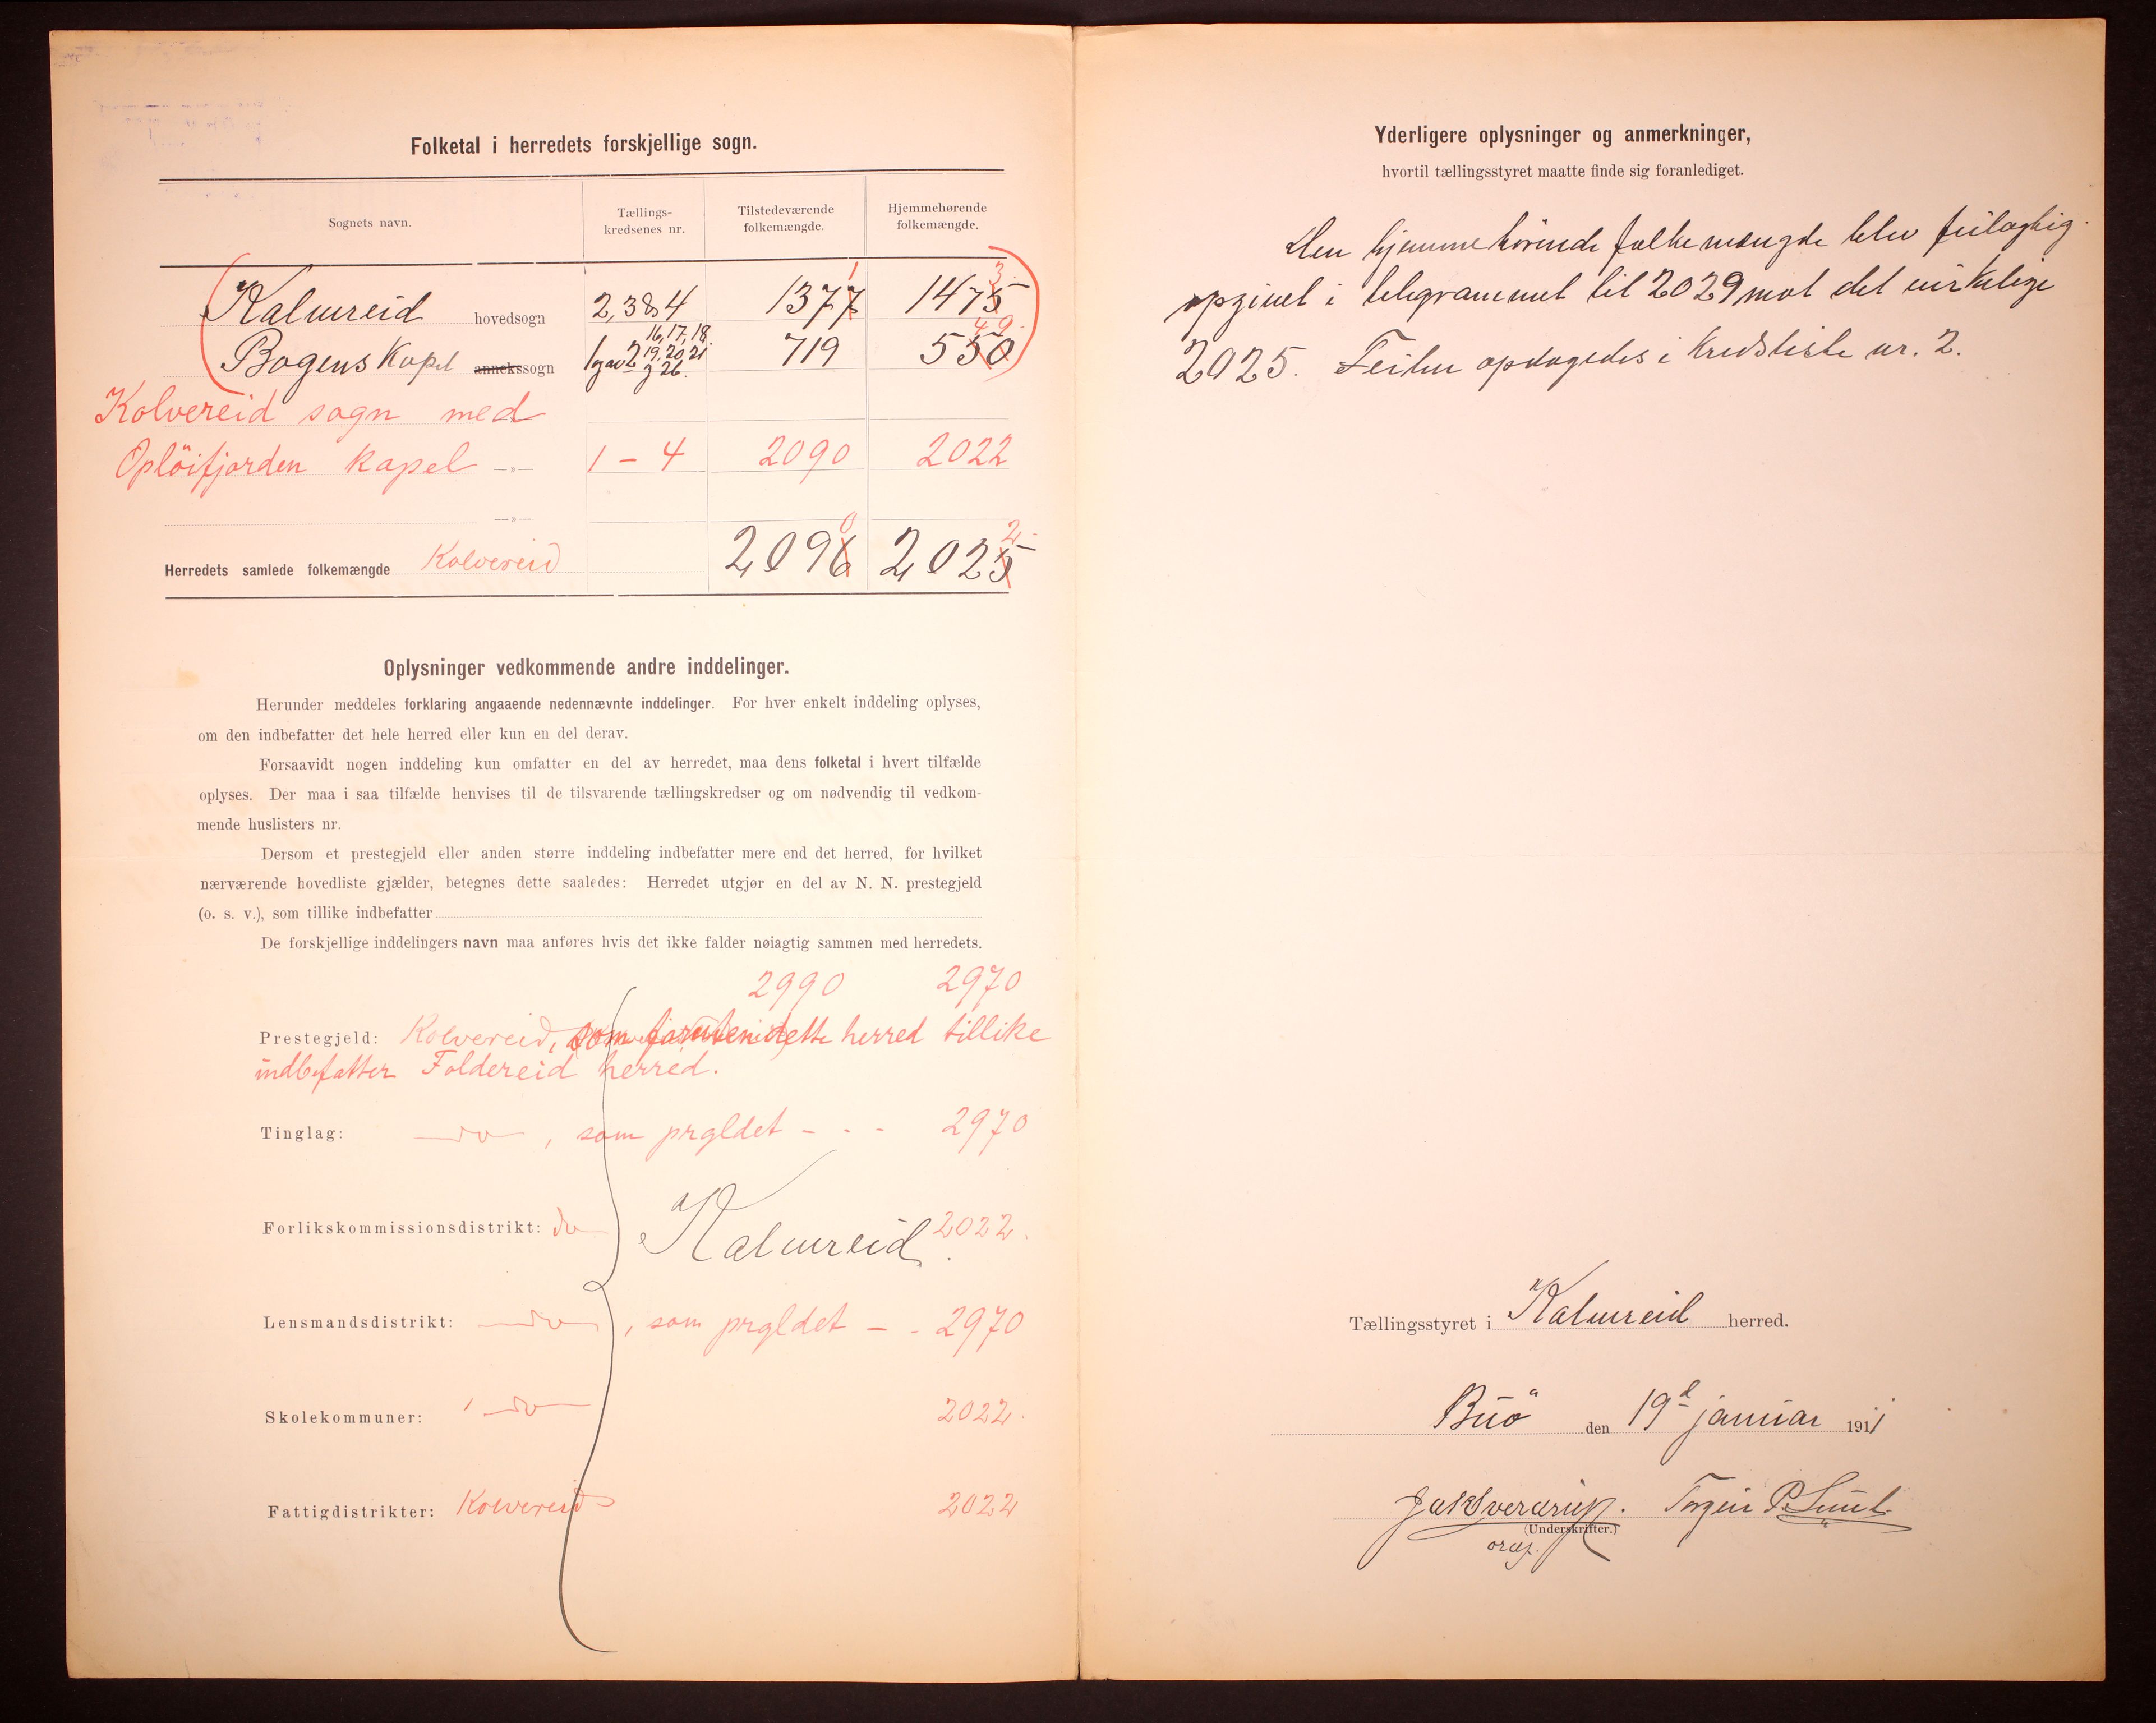 Folketal i herredets forskjellige sogn.
Sognets navn.
Tællings-
kredsenes nr.
Tilstedeværende
folkemængde.
Hjemmehørende
folkemængde.
Kolvereid hovedsogn 2, 3 & 4 1377 1 1475 3
Bogens Kapel annekssogn 1 g av 2 16, 17, 18, 19, 20, 21 g 26. 719 550 49
Kolvereid sogn med
Opløifjorden kapel —»— 1 – 4 2090 2022
—»—
Herredets samlede folkemængde Kolvereid 2096 0 2025 2
Oplysninger vedkommende andre inddelinger.
Herunder meddeles forklaring angaaende nedennævnte inddelinger. For hver enkelt inddeling oplyses,
om den indbefatter det hele herred eller kun en del derav.
Forsaavidt nogen inddeling kun omfatter en del av herredet, maa dens folketal i hvert tilfælde
oplyses. Der maa i saa tilfælde henvises til de tilsvarende tællingskredser og om nødvendig til vedkom-
mende huslisters nr.
Dersom et prestegjeld eller anden større inddeling indbefatter mere end det herred, for hvilket
nærværende hovedliste gjælder, betegnes dette saaledes: Herredet utgjør en del av N. N. prestegjeld
(o. s. v.), som tillike indbefatter
De forskjellige inddelingers navn maa anføres hvis det ikke falder nøiagtig sammen med herredets.
2990 2970
Prestegjeld: Kolvereid, som foruten dette herred tillike
indbefatter Foldereid herred.
Tinglag: — do —, som prgldet – - - 2970
Forlikskommissionsdistrikt: do Kolvereid. 2022.
Lensmandsdistrikt: — do —, som prgldet – - 2970
Skolekommuner: 1 — do — 2022.
Fattigdistrikter: Kolvereid 2022
Yderligere oplysninger og anmerkninger,
hvortil tællingsstyret maatte finde sig foranlediget.
Den hjemmehørende folkemængde blev feilagtig
opgivet i telegrammet til 2029 mot det virkelige
2025. Feilen opdagedes i Kredsliste nr. 2.
Tællingsstyret i Kolvereid herred.
Buö den 19d januar 1911
Jak Sverdrup. Torgeir P. Lund
(Underskrifter.)
ordf.